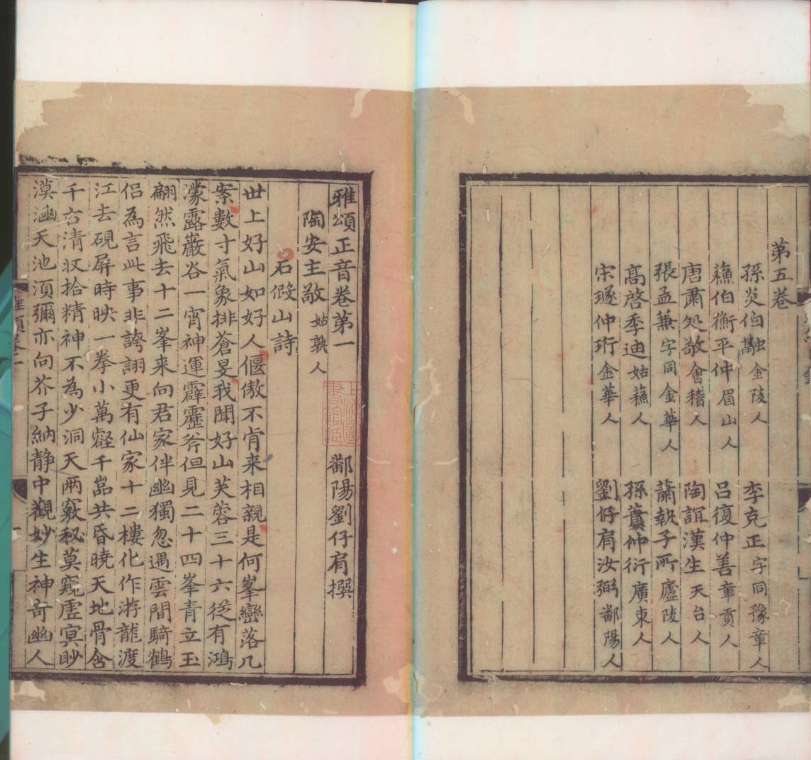 第五卷
孫炎伯融金陵人 李克正字同豫章人
蘓伯衡平仲眉山人 呂復仲善章貢人
唐肅処敬會稽人 陶誼漢生天台人
張孟兼字同金華人 蕭執子所廬陵人
髙啓季迪姑蘓人 孫蕡仲衍廣東人
宋璲仲珩金華人 劉仔肩汝弼鄱陽人
雅頌正音卷第一
鄱陽劉仔肩撰
陶安主敬姑孰人
石假山詩
世上好山如好人偃傲不肯来相親是何峯巒落几
案數寸氣象排蒼旻我聞好山芙蓉三十六從有鴻
濛露巖谷一宵神運霹靂斧但見二十四峯青立玉
翩然飛去十二峯来向君家伴幽獨忽遇雲間騎鶴
侣為言此事非誇詡更有仙家十二樓化作游龍渡
江去硯屏時映一拳小萬壑千嵓共昏曉天地骨含
千古清収拾精神不為少洞天兩竅秘莫窺虛寞眇
漠涵天池湏彌亦向芥子納静中觀妙生神奇幽人